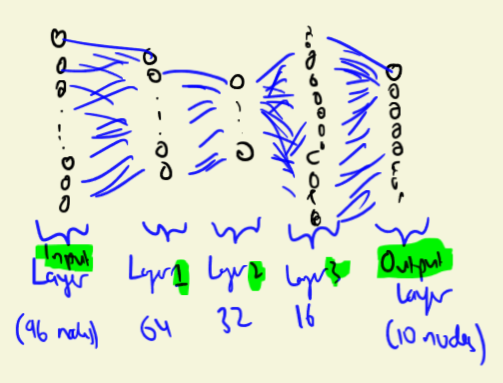 Input
Layer
(96 nodes)
Layer 1
64
Layer 2
32
Layer 3
16
Output
Layer
(10 nodes)